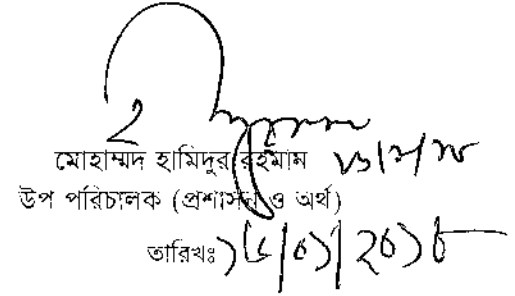 মোহাম্মদ হামিদুর রহমান
উপ পরিচালক (প্রশাসন ও অর্থ)
তারিখঃ ১৫/০১/২০১৮